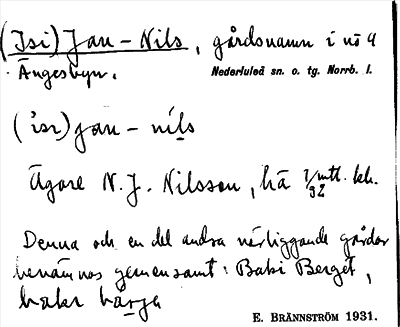 (Isi) Jan-Nils, gårdsnamn i nö 4
Ängesbyn.
Nederluleå sn. o. tg. Norrb. l.
(i̊sı) jan-níls
Ägare N. J. Nilsson,
Denna och en del andra närliggande gårdar
benämnas gemensamt: Baki Berget,
E. BRÄNNSTRÖM 1931.